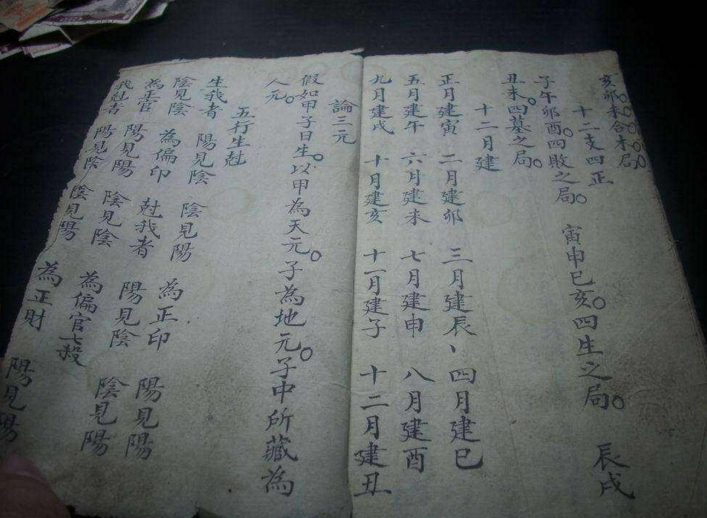 亥卯未合木局
十二支四正
子午卯酉。四敗之局。 寅申巳亥。四生之局。 辰戌
丑未。四墓之局。
十二月建
正月建寅 二月建卯 三月建辰、四月建巳
五月建午 六月建未 七月建申 八月建酉
九月建戌 十月建亥 十一月建子 十二月建丑
論三元
假如甲子日生。以甲為天元。子為地元。子中所藏為
人元。
五行生尅
生我者 陽見陰 陰見陽 為正印 陽見陽
陰見陰 為偏印 尅我者 陽見陰 陰見陽
為正官 陽見陽 陰見陰 為偏官七殺
我尅者 陽見陰 陰見陽 為正財 陽見陽